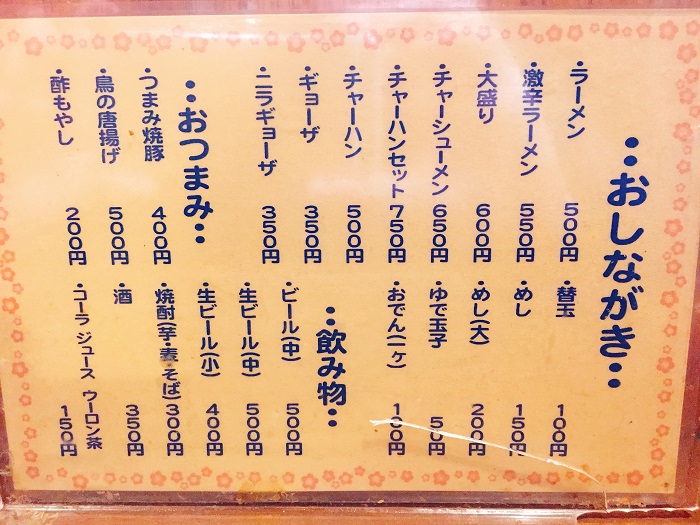 ・・おしながき・・
・ラーメン 500円
・激辛ラーメン 550円
・大盛り 600円
・チャーシューメン 650円
・チャーハンセット 750円
・チャーハン 500円
・ギョーザ 350円
・ニラギョーザ 350円
・・おつまみ・・
・つまみ焼豚 400円
・鳥の唐揚げ 500円
・酢もやし 200円
・替玉 100円
・めし 150円
・めし(大) 200円
・ゆで玉子 50円
・おでん(一ヶ) 100円
・・飲み物・・
・ビール(中) 500円
・生ビール(中) 500円
・生ビール(小) 400円
・焼酎(芋・麦・そば) 300円
・酒 350円
・コーラ ジュース ウーロン茶 150円